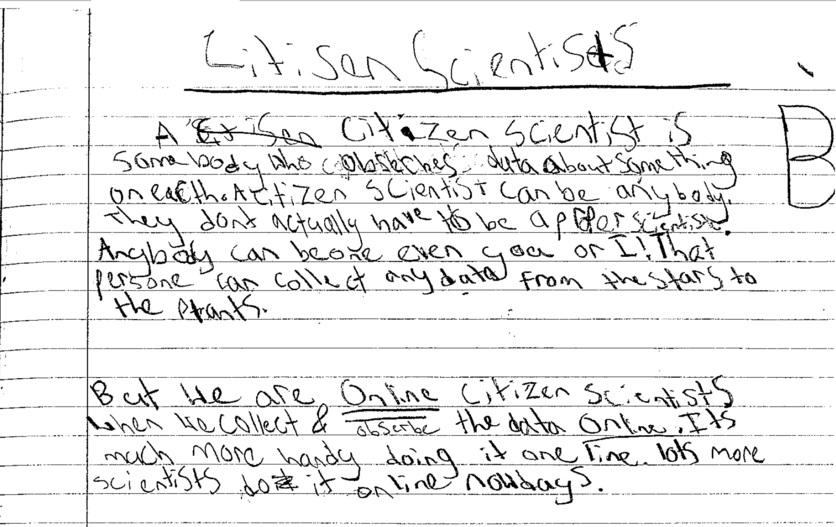 Citisen Scientists
A Citizen scientist is
Somebody who obseches data about something
on earth. A citizen scientist can be anybody.
they dont actually have to be a proper scientist.
Anybody can be one even you or I! That
persone can collect any data from the stars to
the plants.
B
But we are Online citizen scientists
when we collect & obserbe the data Online. Its
much more handy doing it one line. lots more
scientists do it on line nowbays.